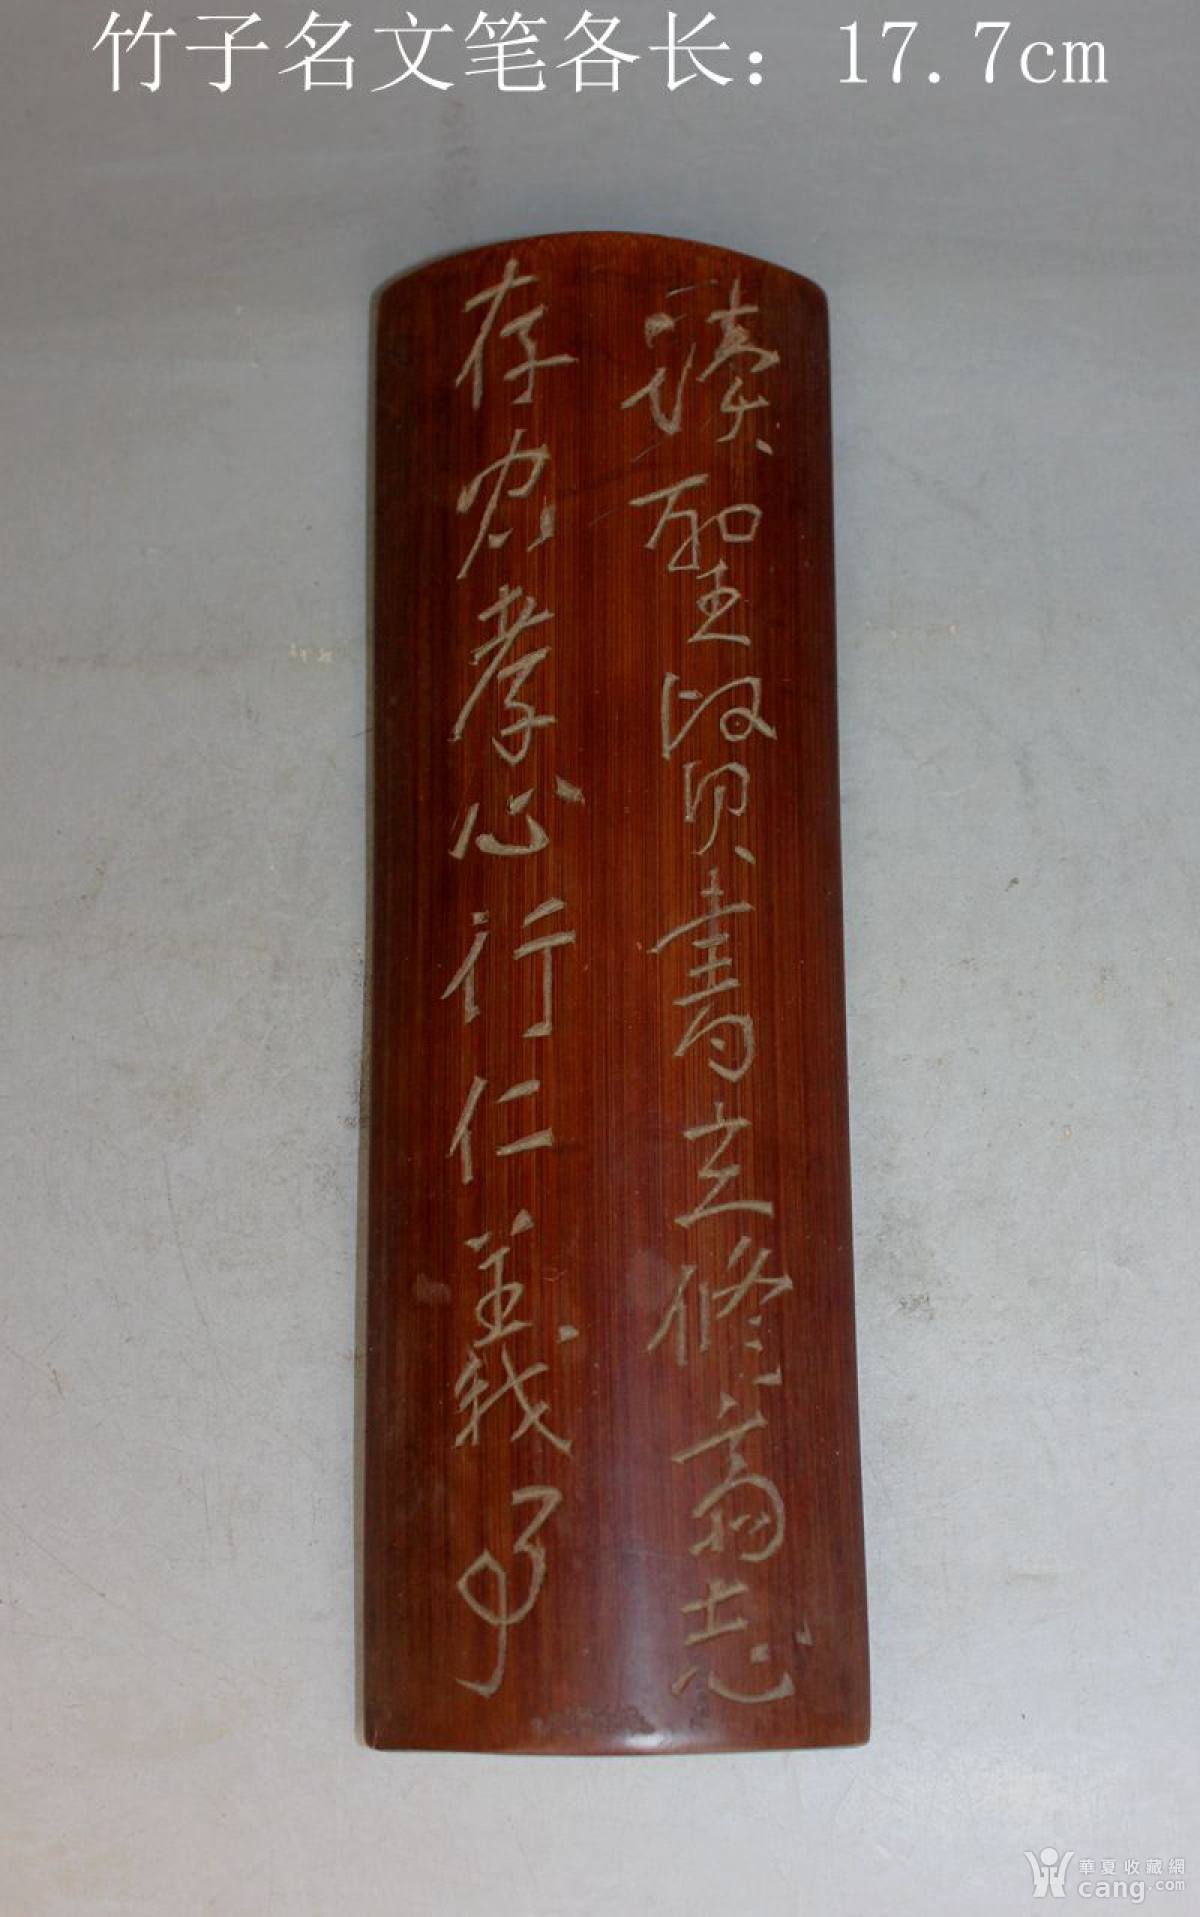 竹子名文笔各长：17.7cm
讀聖賢書立修齊志
存忠孝心行仁義事
華夏收藏網
cang.com